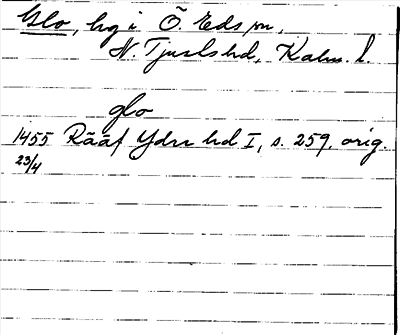 Glo, hg i Ö. Eds sn,
N. Tjusts hd, Kalm. l.
glo
1455 Rääf Ydre hd I, s. 259. orig.
23/4